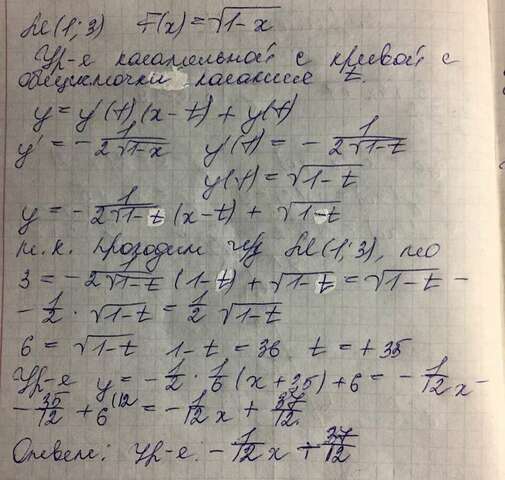 M(1; 3) F(x) = √1-x
Ур-я касательной с кривой с
касание t.
y = y'(t)(x-t) + y(t)
y' = - 1/2√1-x y'(t) = - 1/2√1-t
y(t) = √1-t
y = - 1/2√1-t (x-t) + √1-t
т.к. проходит чрз M(1; 3), то
3 = - 2√1-t (1-t) + √1-t = √1-t -
- 1/2 · √1-t = 1/2 √1-t
6 = √1-t 1-t = 36 t = + 35
Ур-е y = - 1/2 · 1/6 (x + 35) + 6 = - 1/12 x -
- 35/12 + 6^(12 = - 1/12 x + 37/12.
Ответ: Ур-е: - 1/12 x + 37/12